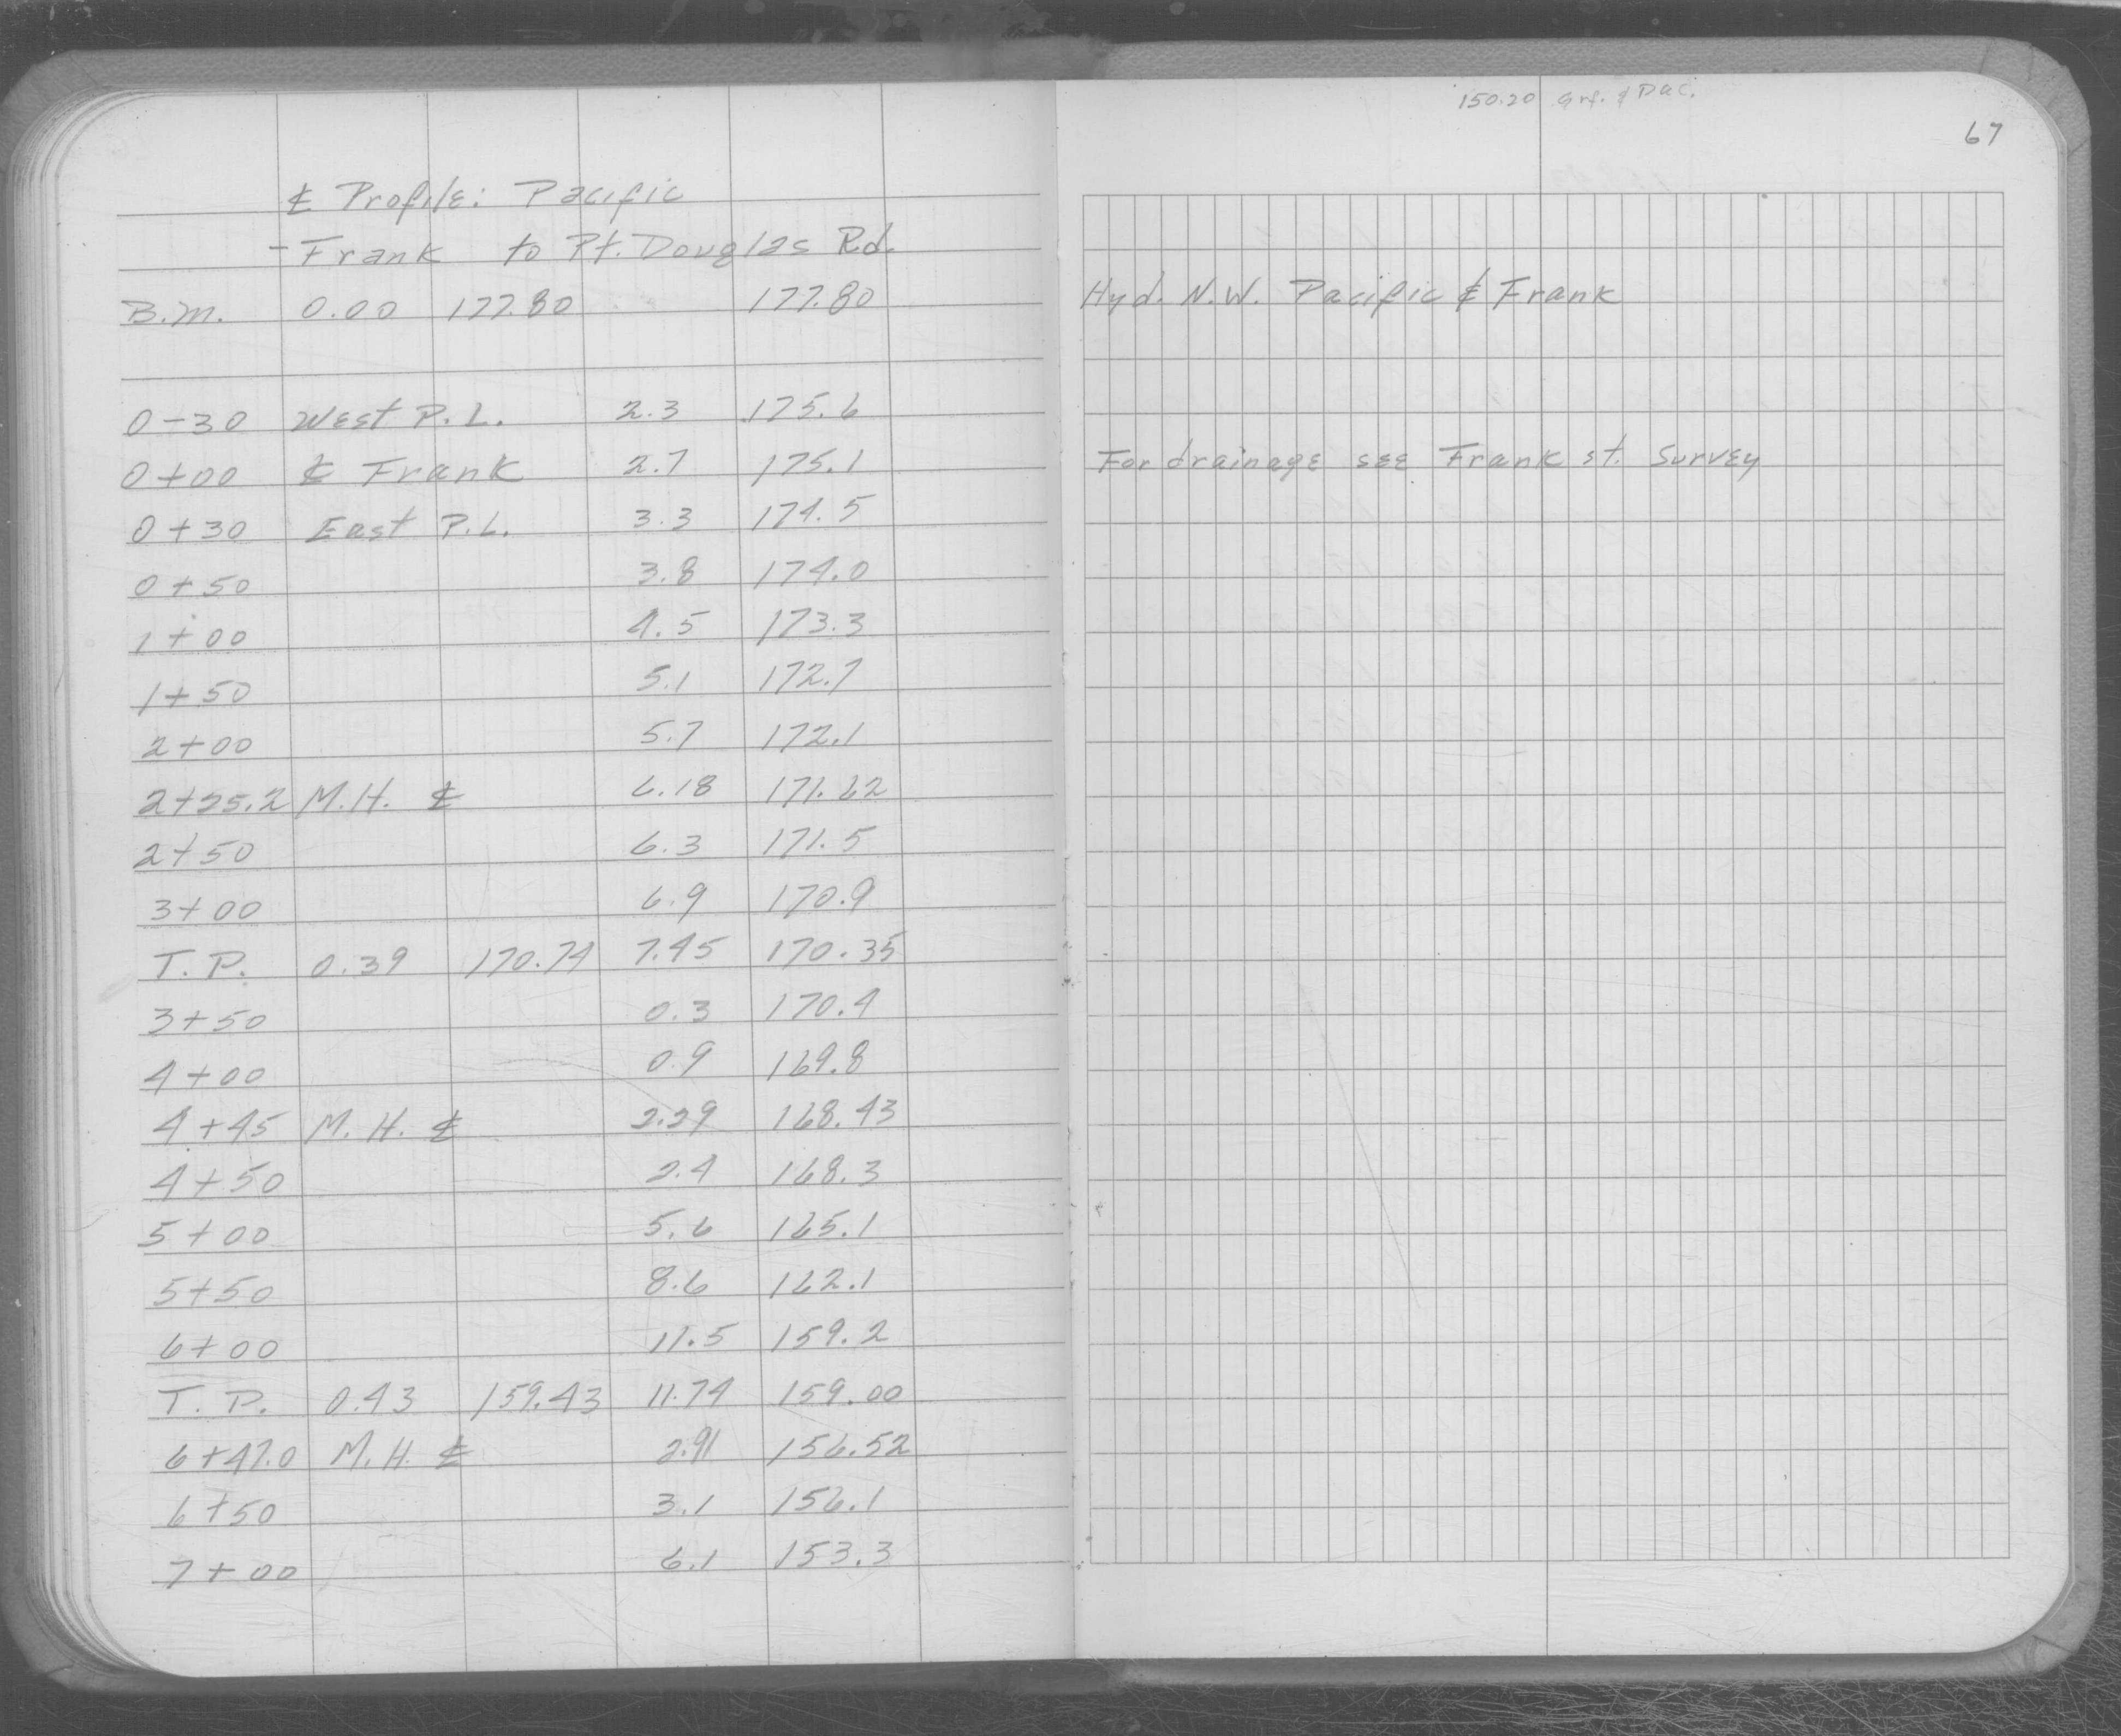 ℄ Profile: Pacific
- Frank to Pt. Douglas Rd.
B.M. 0.00 177.80 177.80
0-30 West P.L. 2.3 175.6
0+00 ℄ Frank 2.7 175.1
0+30 East P.L. 3.3 174.5
0+50 3.8 174.0
1+00 4.5 173.3
1+50 5.1 172.7
2+00 5.7 172.1
2+25.2 M.H. ℄ 6.18 171.62
2+50 6.3 171.5
3+00 6.9 170.9
T.P. 0.39 170.74 7.45 170.35
3+50 0.3 170.4
4+00 0.9 169.8
4+45 M.H. ℄ 2.29 168.43
4+50 2.4 168.3
5+00 5.6 165.1
5+50 8.6 162.1
6+00 11.5 159.2
T.P. 0.43 159.43 11.74 159.00
6+47.0 M.H. ℄ 2.91 156.52
6+50 3.1 156.1
7+00 6.1 153.3
150.20 & Pac.
67
Hyd. N.W. Pacific & Frank
For drainage see Frank st. Survey